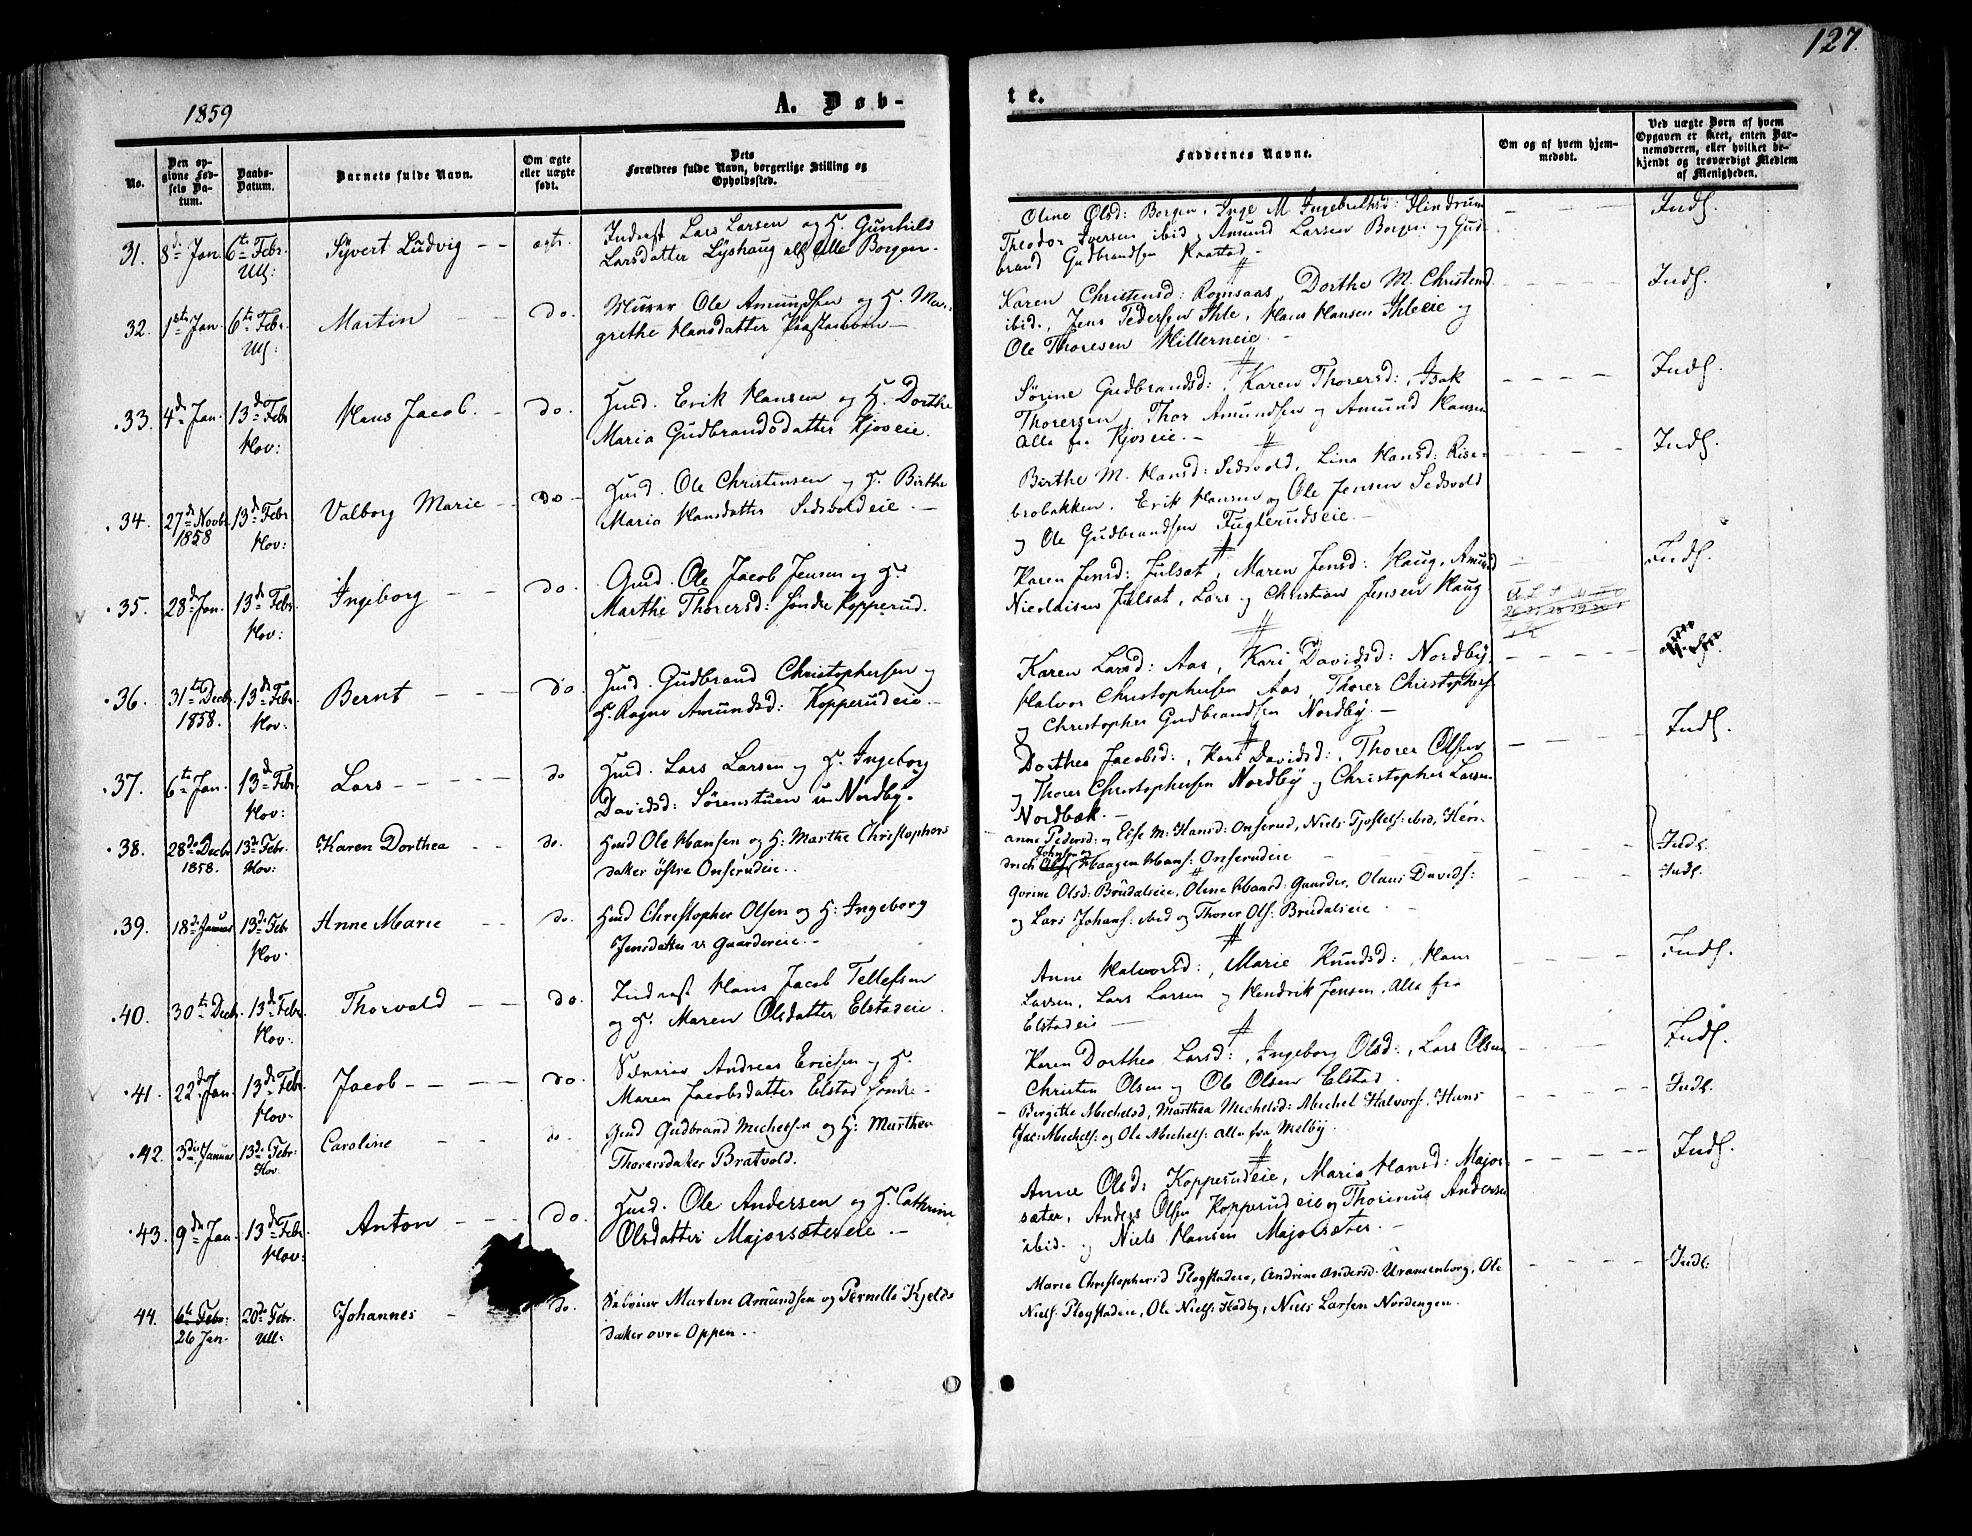 127.
1859
A. Døb-
te.
No.
Den opgivne Fødsels Datum.
Daabs-Datum.
Barnets fulde Navn.
Om ægte eller uægte født.
Dets Forældres fulde Navn, borgerlige Stilling og Opholdssted.
Faddernes Navne.
Om og af hvem hjemmedøbt.
Ved uægte Børn af hvem Opgaven er skeet, enten Barnemoderen, eller hvilket bekjendt og troværdigt Medlem af Menigheden.
31. 8de Jan. 6te Febr. Ull: Syvert Ludvig -- ægte.
Inderst Lars Larsen og H. Gunhild
Larsdatter Lyshaug all Borgen.
Oline Olsd: Borgen, Inge M. Ingebrethsd: Hindrum
Theodor Iversen ibid, Amund Larsen Borgen og Gud-
brand Gudbrandsen Kaatad -
Indf.
32. 1ste Jan. 6te Febr. Ull: Martin -- do.
Murer Ole Amundsen og H. Mar-
grethe Hansdatter
Karen Christensd: Romsaas, Dorthe M. Christensd
ibid., Jens Pedersen Ihle, Hans Hansen Ihleeie og
Ole Thoresen Hillerneie. -
Indf.
33. 4de Jan. 13de Febr Hov: Hans Jacob. - do.
Husd. Erik Hansen og H. Dorthe
Maria Gudbrandsdatter Kjoseie.
Sørine Gudbrandsd: , Karen Thorersd: , Isak
Thorersen, Thor Amundsen og Amund Hansen
Alle fra Kjoseie. -
Indf.
34. 27de Novbr. 1858 13de Febr Hov: Valborg Marie -- do -
Husd. Ole Christensen og H. Birthe
Maria Hansdatter Sedsvoldeie. -
Birthe M. Hansd: Sedsvold, Lina Hansd: Rise-
brobakken, Erik Hansen og Ole Jensen Sedsvold
og Ole Gudbrandsen Fuglerudseie -
Indf.
35. 28de Jan. 13de Febr. Hov: Ingeborg -- do.
Gmd. Ole Jacob Jensen og H.
Marthe Thorersd: Søndre Kopperud.
Karen Jensd: Julsat, Maren Jensd: Haug, Amund
Nicolaisen Julsat, Lars og Christian Jensen Haug
Indf.
36. 31te Decbr 1858. 13de Febr. Hov: Bernt --- do.
Husd. Gudbrand Christophersen og
H. Ragne Amundsd: Kopperudeie -
Karen Larsd: Aas, Kari Davidsd: Nordby,
Halvor Christophersen Aas, Thorer Christophers
og Christopher Gudbrandsen Nordby. -
37. 6te Jan. 13de Febr. Hov: Lars -- do
Husd. Lars Larsen og H. Ingeborg
Davidsd: Sørenstuen u. Nordby.
Dorthea Jacobsd: , Kari Davidsd: , Thorer Olsen
og Thorer Christophersen Nordby og Christopher Larsen
Nordbæk. -
Indf.
38. 28de Decbr 1858. 13de Febr. Hov: Karen Dorthea -- do.
Husd Ole Hansen og H: Marthe Christophers
datter østre Onserudeie..
anne Pedersd: og Else M: Hansd: Onserud, Niels Gjostels: ibid, Hen-
drich Olsen Johnsen og Haagen Hans: Onserudeie
Indf.
39. 18de Januar 13de Febr Hov. Anne Marie -- do.
Husd Christopher Olsen og H: Ingeborg
Jensdatter v. Gaardereie.-
Gorine Olsd: Brudalseie, Oline Hansd: Gaarder, Olaus Davids:
og Lars Johans: ibid og Thorer Ols: Brudalseie
Indf.
40. 30te Decbr. 13de Febr. Hov: Thorvald -- do.
Inderst Hans Jacob Tellefsen
og H. Maren Olsdatter Elstadeie.
Anne Halvorsd: , Marie Knudsd: , Hans
Larsen, Lars Larsen og Hendrik Jensen, Alle fra
Elstadeie -
Indf.
41. 22de Jan. 13de Febr. Hov. Jacob --- do.
Andreas Ericsen og H.
Maren Jacobsdatter Elstad Søndre -
Karen Dorthea Larsd: , Ingeborg Olsd: , Lars Olsen
Christen Olsen og Ole Olsen Elstad.
Indf.
42. 3die Januar 13de Febr: Hov. Caroline -- do.
Gmd Gudbrand Michelsen og H: Marthea
Thorersdatter Bratvold.
Birgitte Michelsd, Marthea Michelsd: Michel Halvors. Hans
Jac: Michels: og Ole Michels: alle fra Melby.
Indf.
43. 9de Jan. 13de Febr. Hov: Anton --- do.
Husd. Ole Andersen og H. Cathrine
Olsdatter Majorsætereie -
Anne Olsd: Kopperudeie, Maria Hansd: Major-
sæter, Anders Olsen Kopperudeie og Thorinus Andersen
ibid. og Niels Hansen Majorsæter. -
Indf.
44. 6te Febr: 26 Jan. 20de Febr. Ull: Johannes - do.
Martin Amundsen og Pernille Kjelds
datter øvre Oppen..
Marie Christophersd Plogstadeie, Andrine Andersd: Uranienborg, Ole
Niels: Plogstadeie, Ole Niels: Hadby, Niels Larsen Nordengen.
Indf.